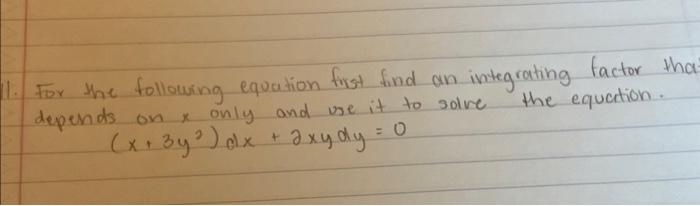 11. For the following equation first find an integrating factor tha
depends on x only and use it to solve the equation.
(x + 3y²) dx + 2xy dy = 0